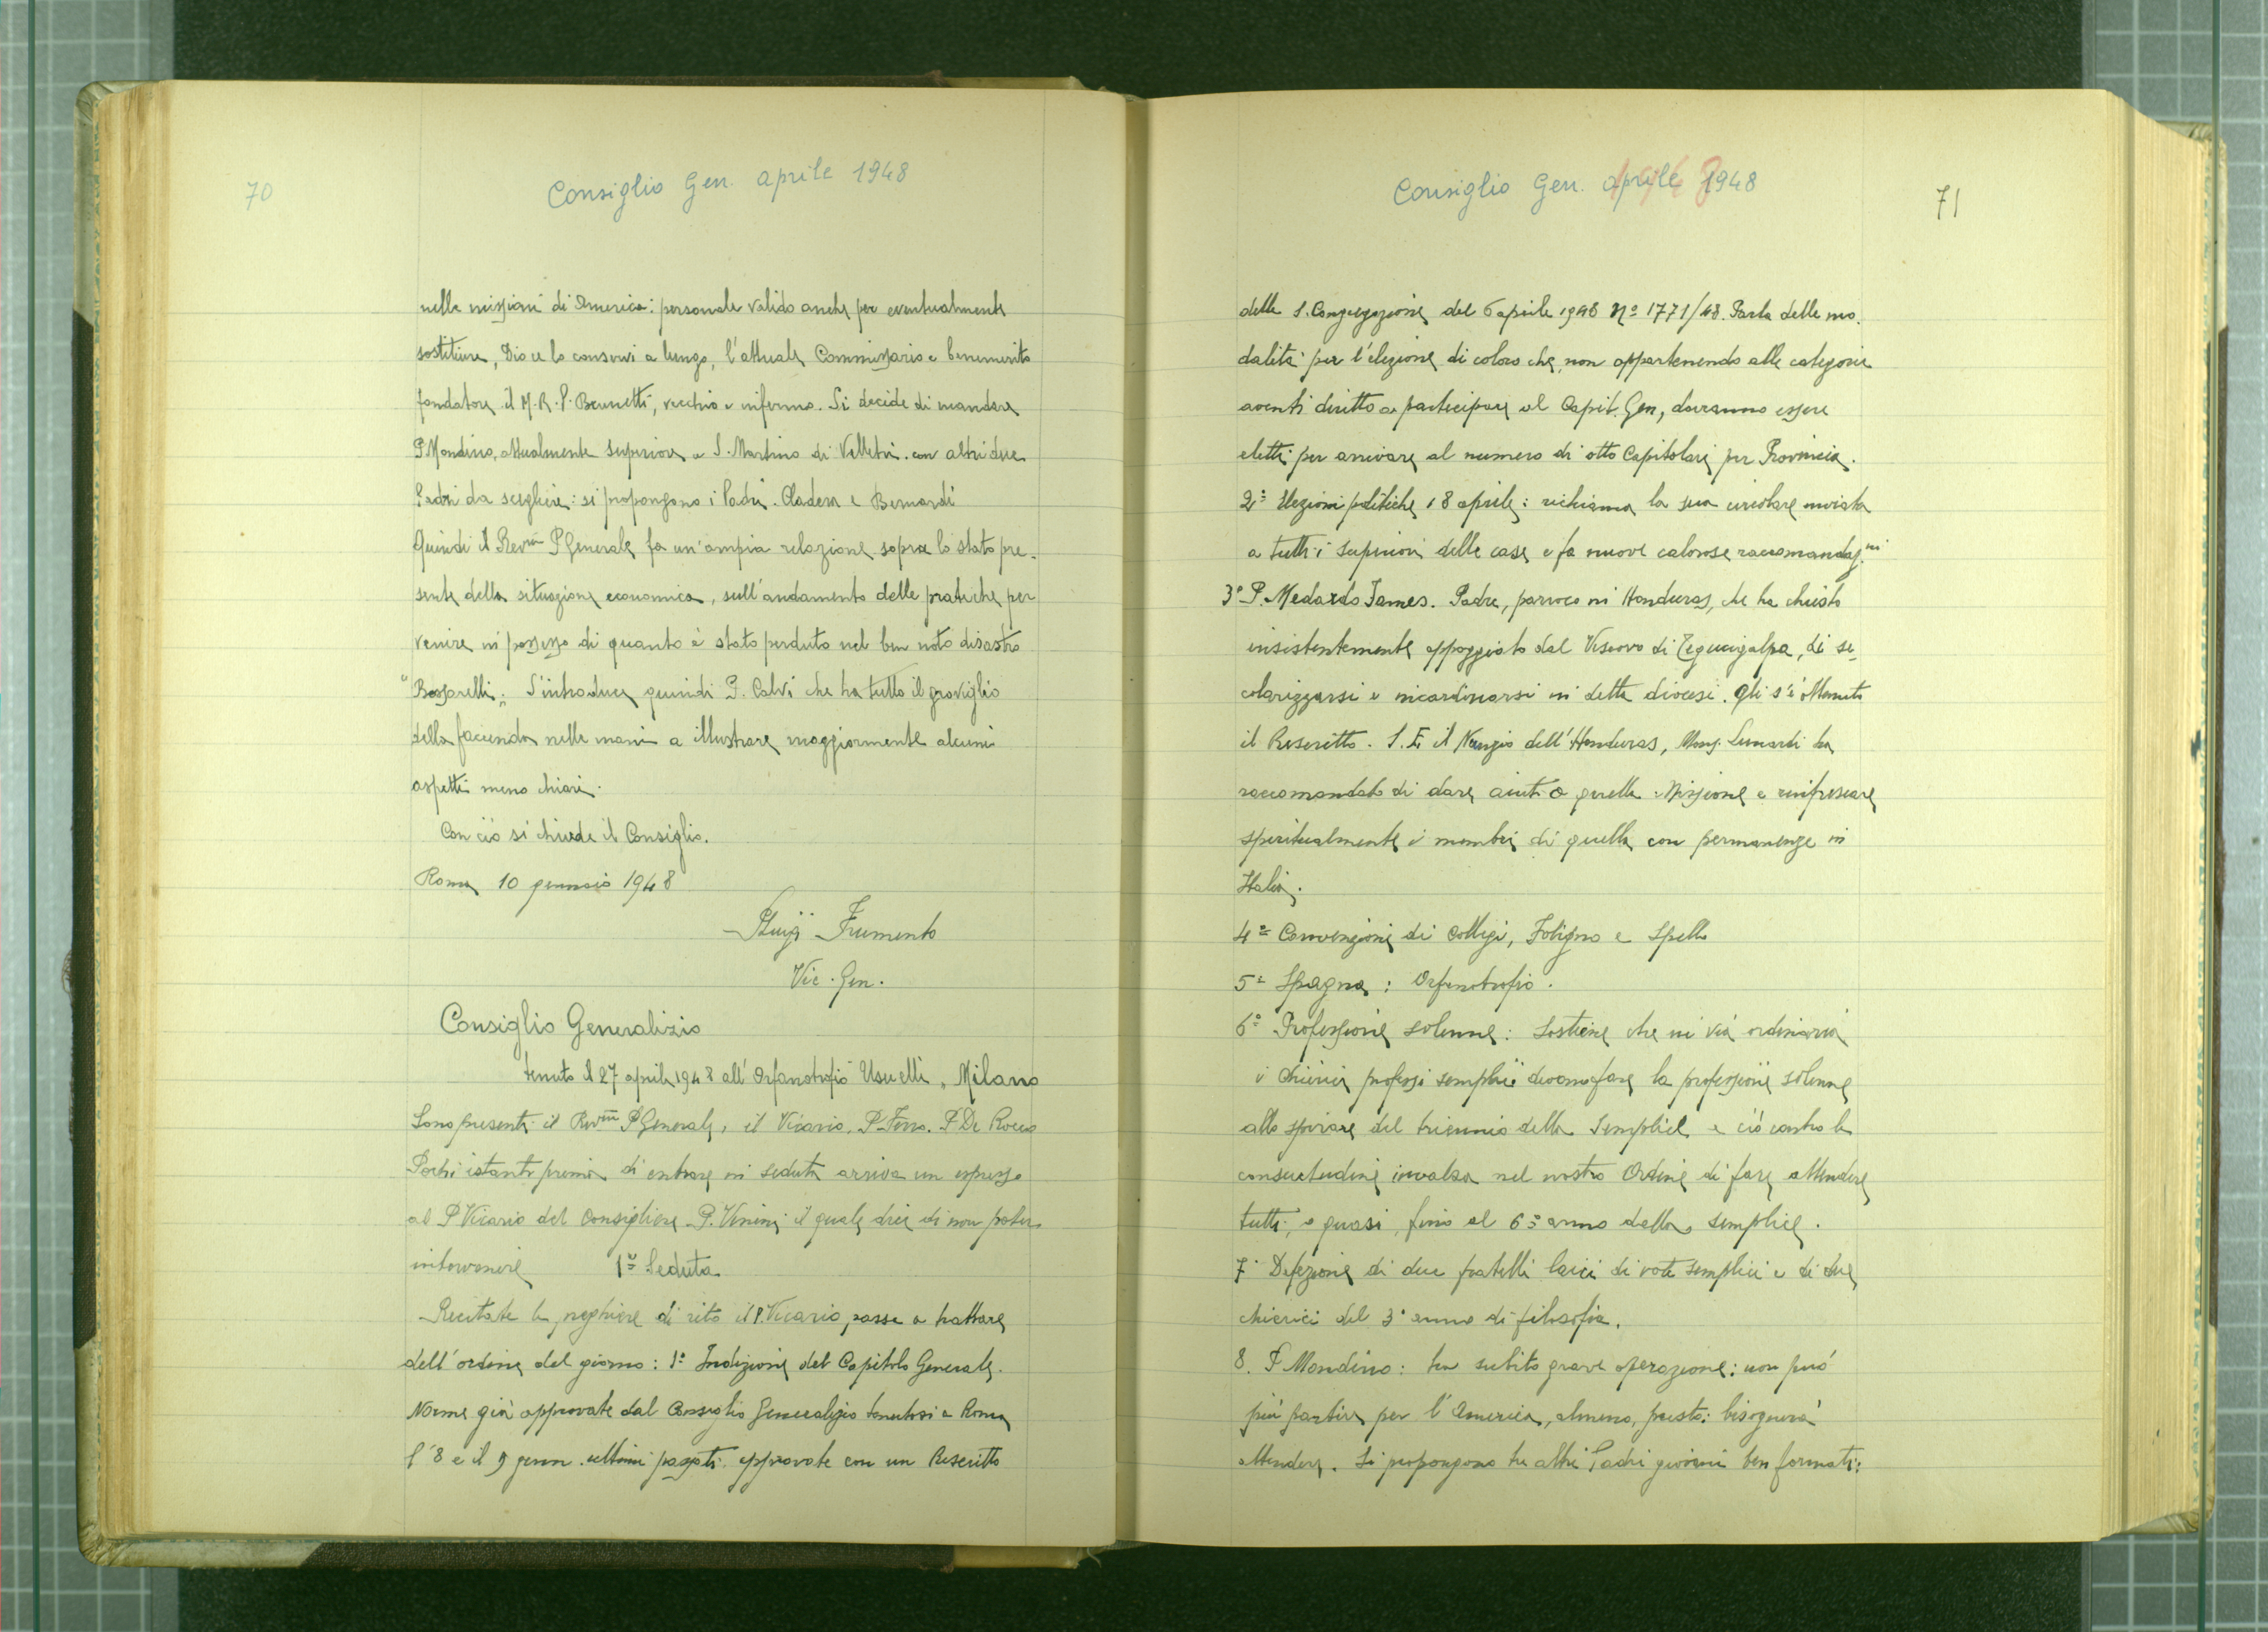 70
Consiglio Gen. aprile 1948
nelle missioni di America: personale valido anche per eventualmente
sostituire, Dio ce lo conservi a lungo, l'attuale Commissario e benemerito
fondatore il M.R.P. Brunetti, vecchio e infermo. Si decide di mandare
P. Mondino, attualmente superiore a S. Martino di Velletri. con altri due
Padri da scegliere: si propongono i Padri. Oladera e Bernardi
Quindi il Rev.mo P. Generale fa un'ampia relazione sopra lo stato pre-
sente della situazione economica, sull'andamento delle pratiche per
venire in possesso di quanto è stato perduto nel ben noto disastro
"Bossarelli„ S'introduce quindi P. Calvi che ha tutto il groviglio
della faccenda nelle mani a illustrare maggiormente alcuni
aspetti meno chiari.
Con ciò si chiude il Consiglio.
Roma 10 gennaio 1948
P. Luigi Frumento
Vic. Gen.
Consiglio Generalizio
tenuto il 27 aprile 1948 all'Orfanotrofio Usuelli „ Milano
Sono presenti il Rev.mo P. Generale, il Vicario, P. Ferro. P. De Rocco
Pochi istanti prima di entrare in seduta arriva un espresso
al P. Vicario del Consigliere P. Venini il quale dice di non poter
intervenire 1ª Seduta
Recitate le preghiere di rito il P. Vicario, passa a trattare
dell'ordine del giorno: 1º Indizione del Capitolo Generale.
Norme già approvate dal Consiglio Generalizio tenutosi a Roma
l'8 e il 9 genn. ultimi passati. approvate con un Rescritto
Consiglio Gen. aprile 1948
71
della S. Congregazione del 6 aprile 1948 Nº 1771/48. Parla delle mo-
dalità per l'elezione di coloro che, non appartenendo alle categorie
aventi diritto a partecipare al Capit. Gen, dovranno essere
eletti per arrivare al numero di otto Capitolari per Provincia.
2º Elezioni politiche 18 aprile: richiama la sua circolare inviata
a tutti i Superiori delle case e fa nuove calorose raccomandaz.ni
3º P. Medardo James. Padre, parroco in Honduras, che ha chiesto
insistentemente appoggiato dal Vescovo di Tegucigalpa, di se-
colarizzarsi e incardinarsi in detta diocesi. Gli s'è ottenuto
il Rescritto. S.E. il Nunzio dell'Honduras, Mons. Lunardi ha
raccomandato di dare aiuti a quella Missione e rinfrescare
spiritualmente i membri di quella con permanenze in
Italia.
4º Convenzioni di Collegi, Foligno e Spello
5º Spagna: Orfanotrofio.
6º Professione solenne: Sostiene che in via ordinaria
i chierici professi semplici devono fare la professione solenne
allo spirare del triennio della Semplice e ciò contro la
consuetudine invalsa nel nostro Ordine di fare attendere
tutti, o quasi, fino al 6º anno della semplice.
7º Defezione di due fratelli laici di voti semplici e di due
chierici del 3º anno di filosofia.
8. P. Mondino: ha subito grave operazione: non può
più partire per l'America, almeno, presto: bisognerà
attendere. Si propongono tre altri Padri giovani ben formati: